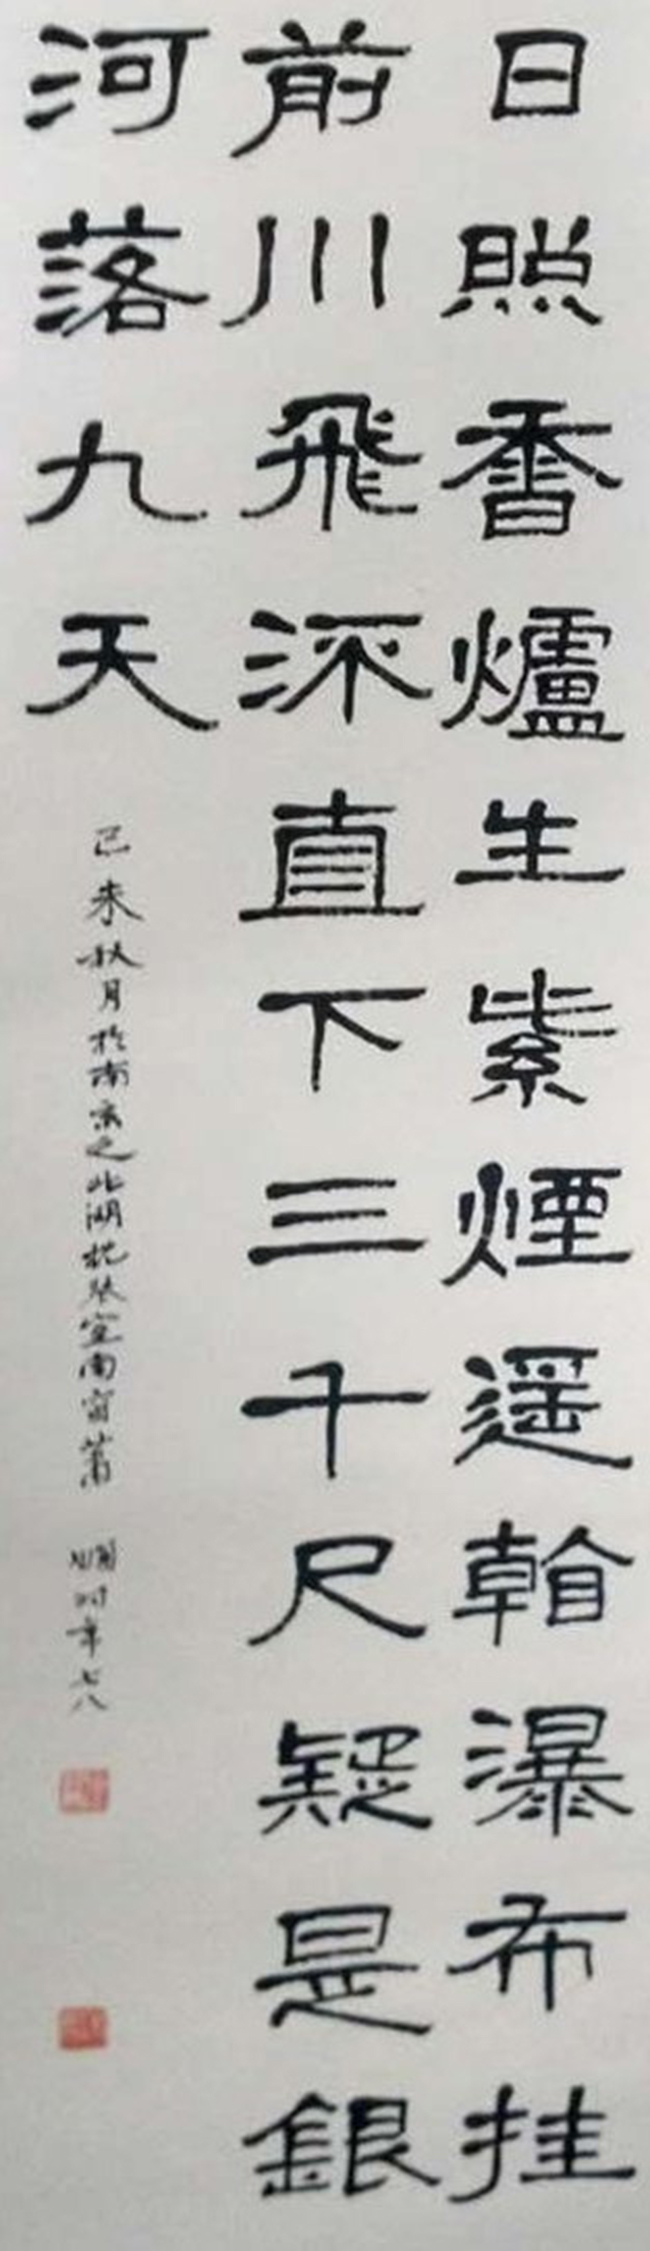 日照香爐生紫煙遥看瀑布挂
前川飛流直下三千尺疑是銀
河落九天
己未秋月於南京之北湖枕琴室南窗蕭嫻时年七八